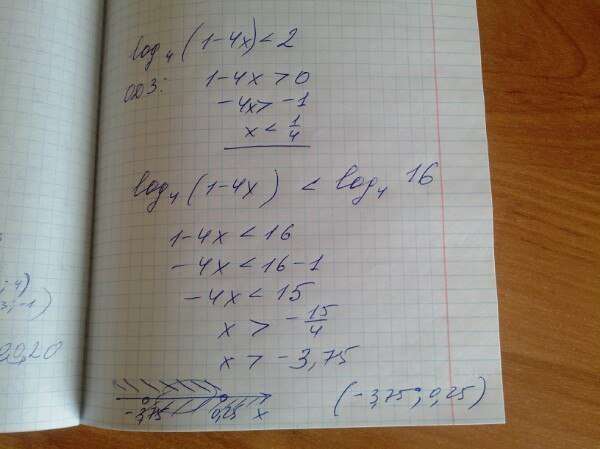 log₄(1-4x)<2
ОДЗ: 1-4x>0
-4x>-1
x<1/4
log₄(1-4x) < log₄ 16
1-4x<16
-4x<16-1
-4x<15
x > -15/4
x > -3,75
-3,75 0,25 x
(-3,75; 0,25)
; -4)
3; -1)